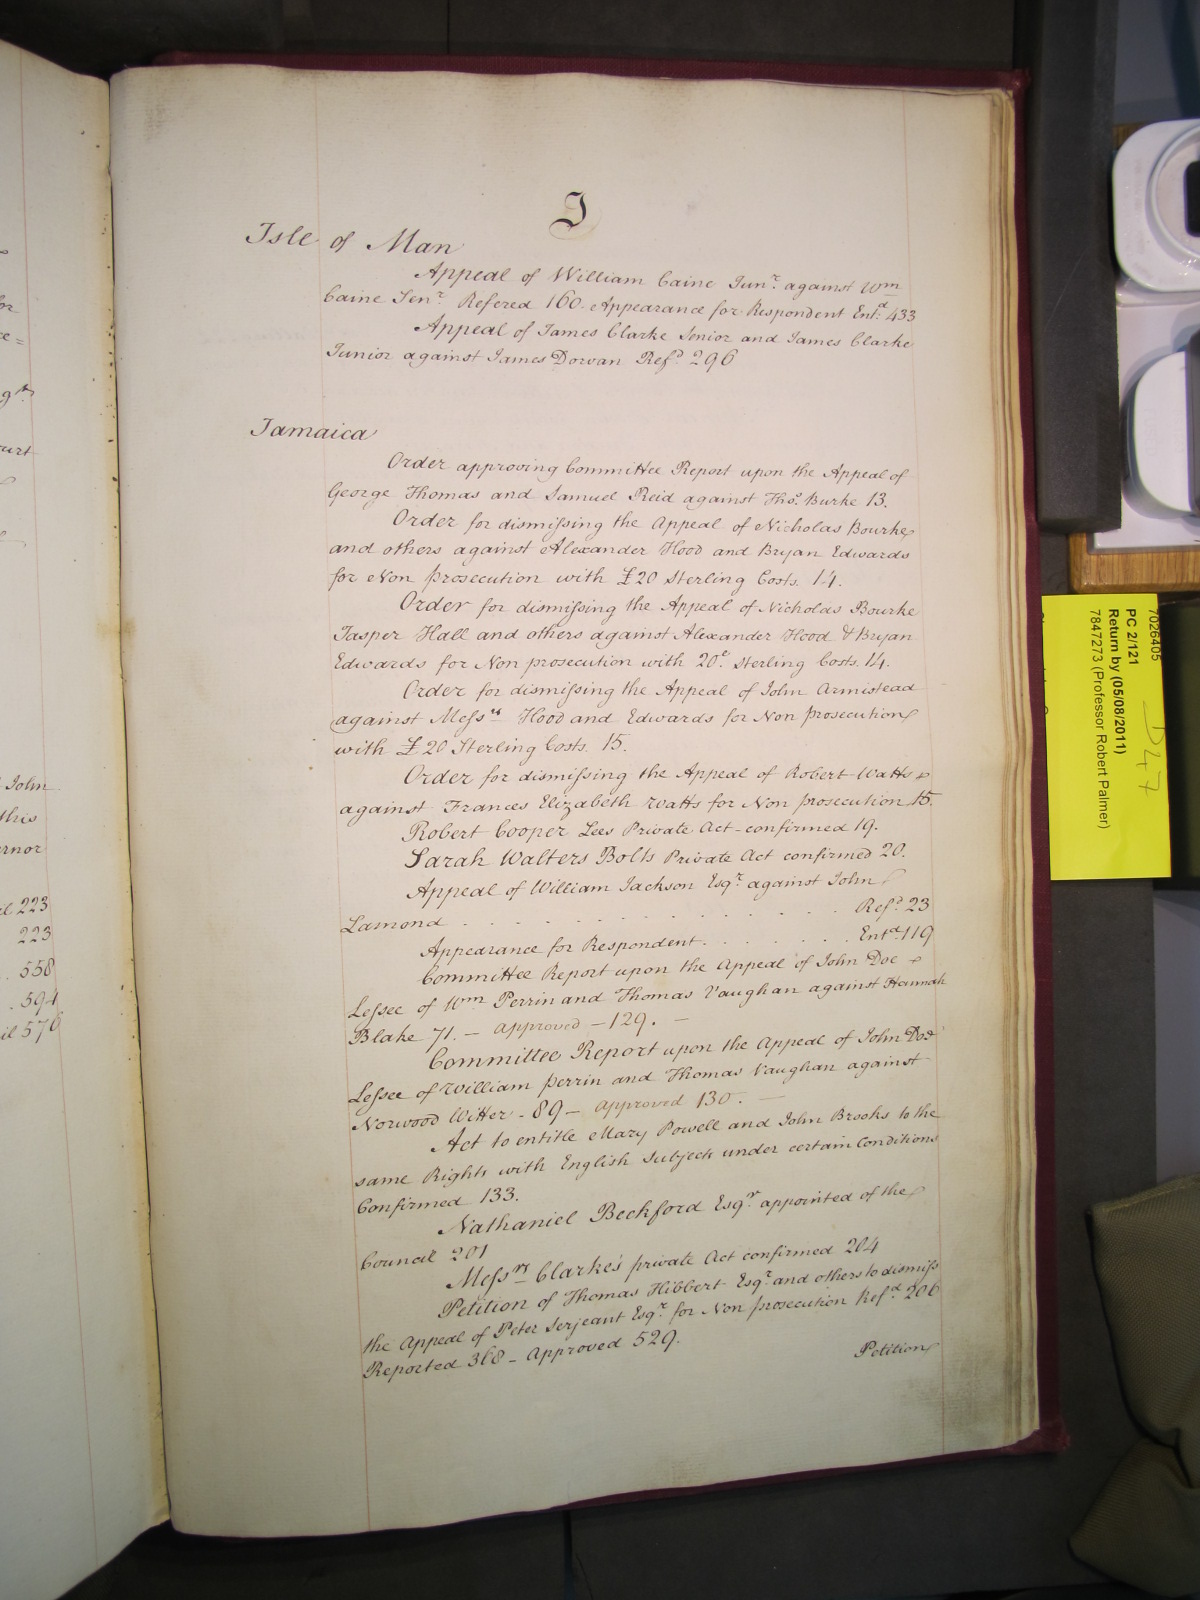 I
Isle of Man
Appeal of William Caine Junr. against Wm
Caine Senr. Refered 160. Appearance for Respondent Entd. 433
Appeal of James Clarke Senior and James Clarke
Junior against James Dowan Refd. 296
Jamaica
Order approving Committee Report upon the Appeal of
George Thomas and Samuel Reid against Thos. Burke 13.
Order for dismissing the Appeal of Nicholas Bourke
and others against Alexander Hood and Bryan Edwards
for Non prosecution with £20 Sterling Costs. 14.
Order for dismissing the Appeal of Nicholas Bourke
Jasper Hall and others against Alexander Hood & Bryan
Edwards for Non prosecution with 20£ Sterling Costs. 14.
Order for dismissing the Appeal of John Armistead
against Messrs Hood and Edwards for Non prosecution
with £20 Sterling Costs. 15.
Order for dismissing the Appeal of Robert Watts
against Frances Elizabeth Watts for Non prosecution 15.
Robert Cooper Lees Private Act confirmed 19.
Sarah Walters Bolts Private Act confirmed 20.
Appeal of William Jackson Esqr. against John
Lamond . . . . . . . . . . . . . Refd. 23
Appearance for Respondent . . . . . . Entd. 119
Committee Report upon the Appeal of John Doe
Lessee of Wm Perrin and Thomas Vaughan against Hannah
Blake 71. – approved – 129. –
Committee Report upon the Appeal of John Doe
Lessee of William Perrin and Thomas Vaughan against
Norwood Witter - 89 – approved 130. –
Act to entitle Mary Powell and John Brooks to the
same Rights with English Subjects under certain Conditions
Confirmed 133.
Nathaniel Beckford Esqr. appointed of the
Council 201
Messrs Clarke's private Act confirmed 204
Petition of Thomas Hibbert Esqr. and others to dismiss
the Appeal of Peter Serjeant Esqr. for Non prosecution Refd. 206
Reported 368 – Approved 529.
Petition
John
this
223
223
558
594
576
7026405
PC 2/121
Return by (05/08/2011)
7847273 (Professor Robert Palmer)
D47